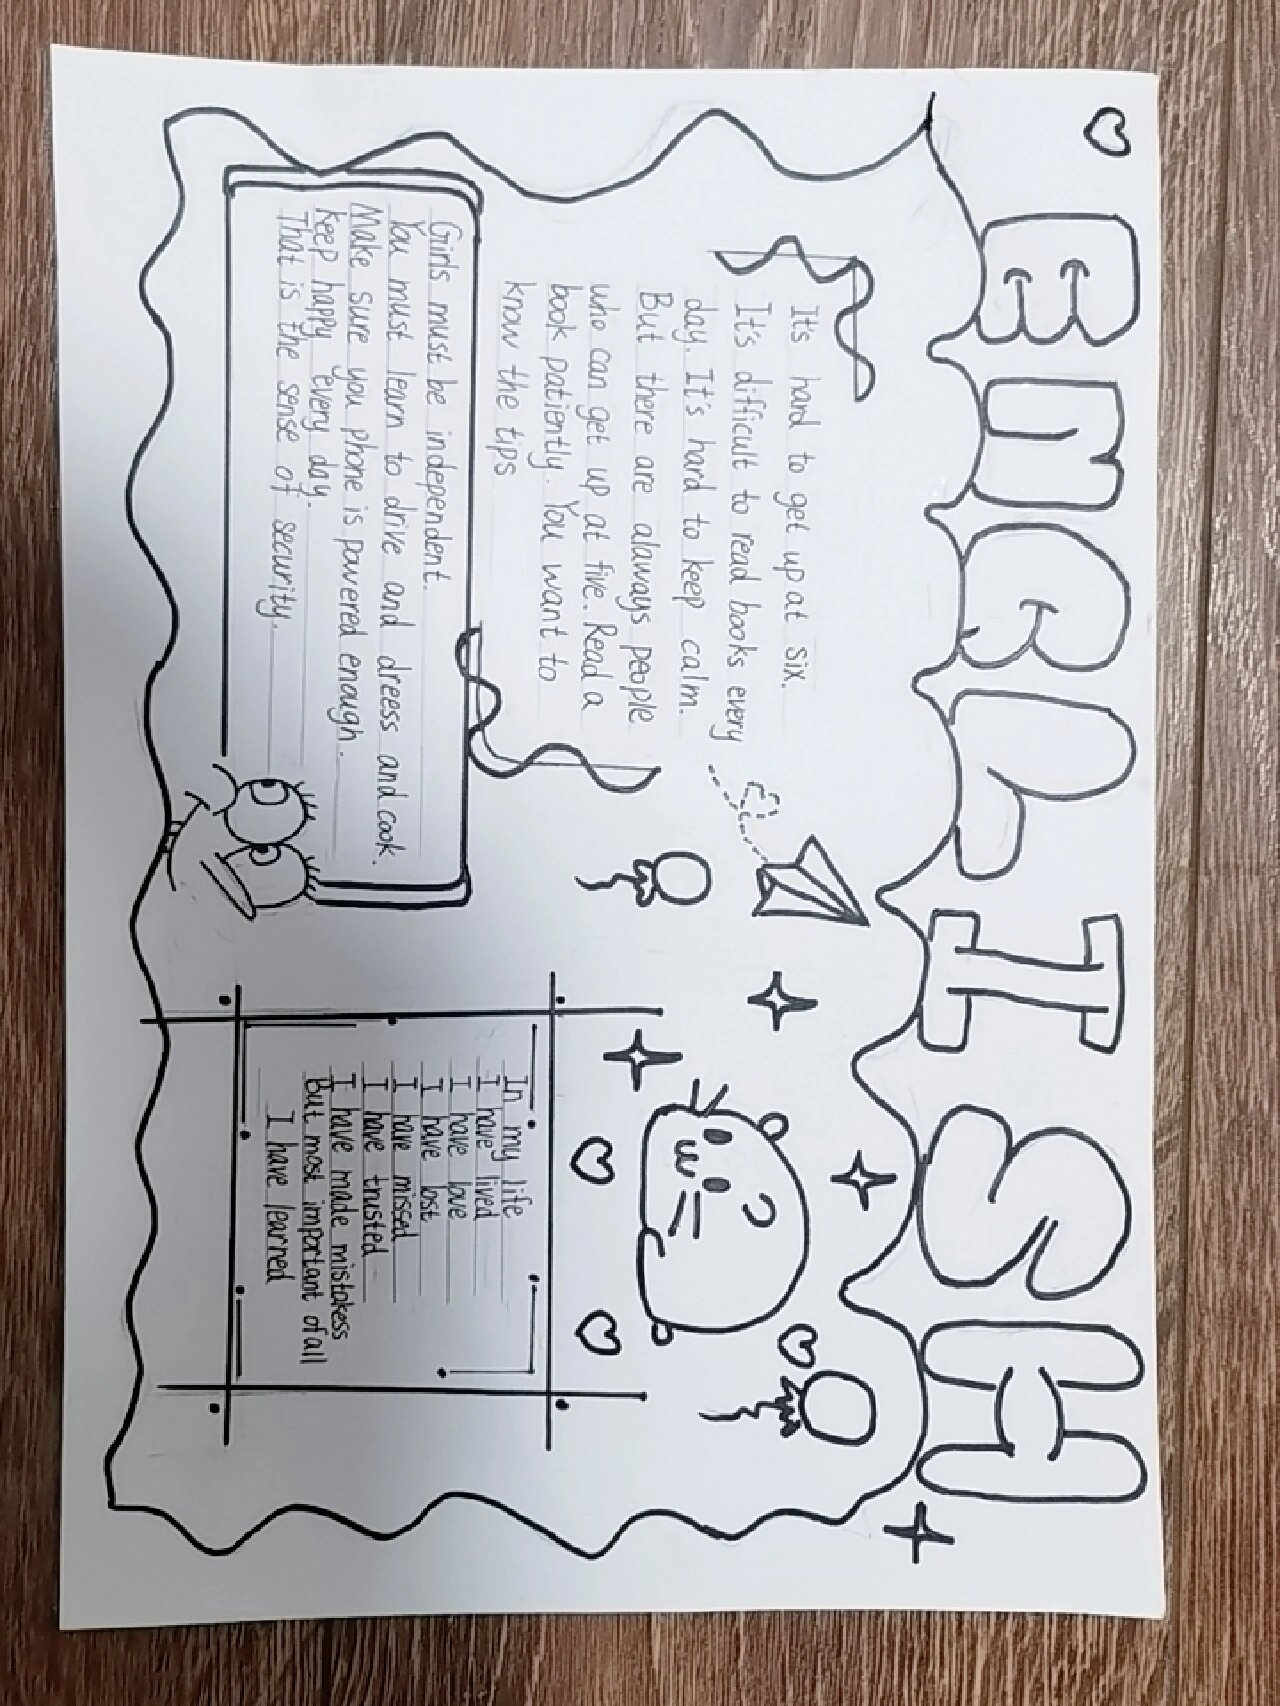 ENGLISH
It's hard to get up at six.
It's difficult to read books every
day. It's hard to keep calm.
But there are alaways people
who can get up at five. Read a
book patiently. You want to
know the tips
Girls must be independent.
You must learn to drive and dreess and cook.
Make sure you phone is powered enough.
keep happy every day.
That is the sense of security.
In my life
I have lived
I have love
I have lost
I have missed
I have trusted
I have made mistakess
But most important of all
I have learned